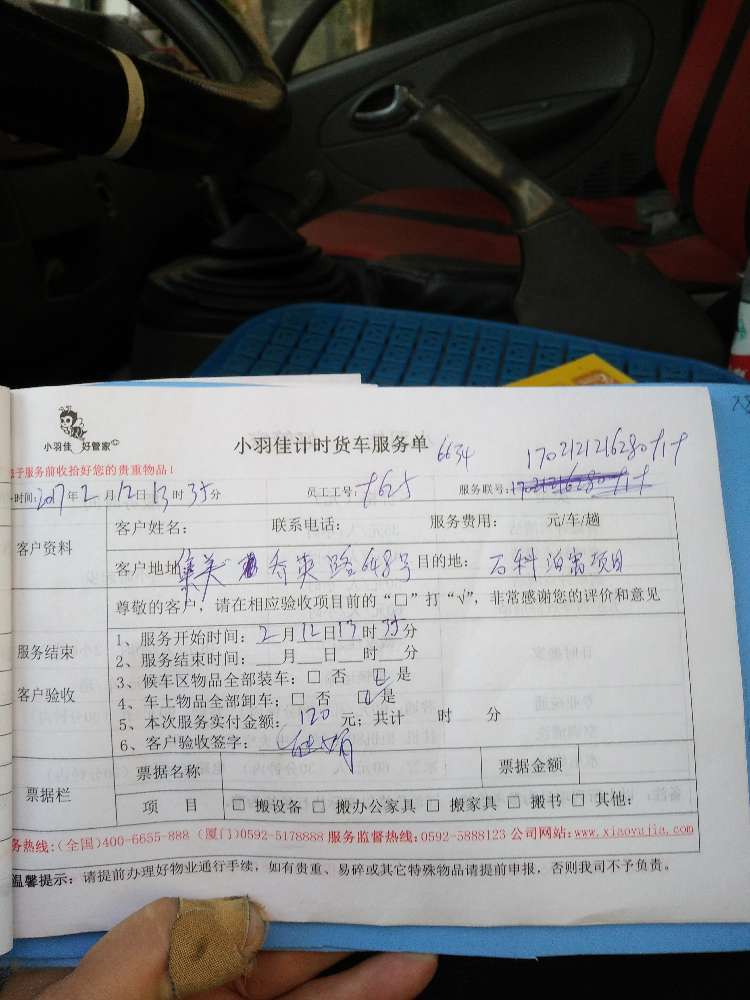 小羽佳 好管家
小羽佳计时货车服务单 6634
服务前收拾好您的贵重物品!
时间:2017年2月12日13时35分 员工工号: 服务联号:
客户资料
客户姓名: 联系电话: 服务费用: 元/车/趟
客户地址:集美 英路648号 目的地: 石科 项目
尊敬的客户,请在相应验收项目前的“□”打“√”,非常感谢您的评价和意见
服务结束
客户验收
1、服务开始时间:2月12日13时35分
2、服务结束时间:___月___日___时___分
3、候车区物品全部装车:□ 否 □ 是
4、车上物品全部卸车:□ 否 □ 是
5、本次服务实付金额:120元;共计 时 分
6、客户验收签字:
票据栏
票据名称 票据金额
项 目 □ 搬设备 □ 搬办公家具 □ 搬家具 □ 搬书 □ 其他:
务热线:(全国)400-6655-888 (厦门)0592-5178888 服务监督热线:0592-5888123 公司网站:www.xiaoyujia.com
温馨提示:请提前办理好物业通行手续,如有贵重、易碎或其它特殊物品请提前申报,否则我司不予负责。